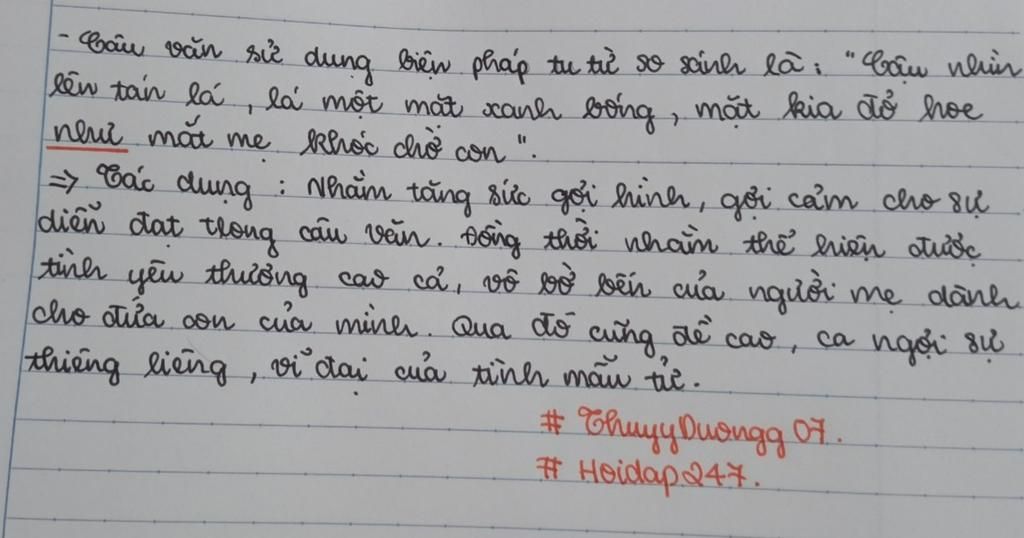 - Câu văn sử dụng biện pháp tu từ so sánh là: "Cậu nhìn
lên tán lá, lá một mặt xanh bóng, mặt kia đỏ hoe
như mắt mẹ khóc chờ con".
=> Tác dụng: Nhằm tăng sức gợi hình, gợi cảm cho sự
diễn đạt trong câu văn. Đồng thời nhằm thể hiện được
tình yêu thương cao cả, vô bờ bến của người mẹ dành
cho đứa con của mình. Qua đó cũng đề cao, ca ngợi sự
thiêng liêng, vĩ đại của tình mẫu tử.
# ThuyyDuongg07.
# Hoidap247.